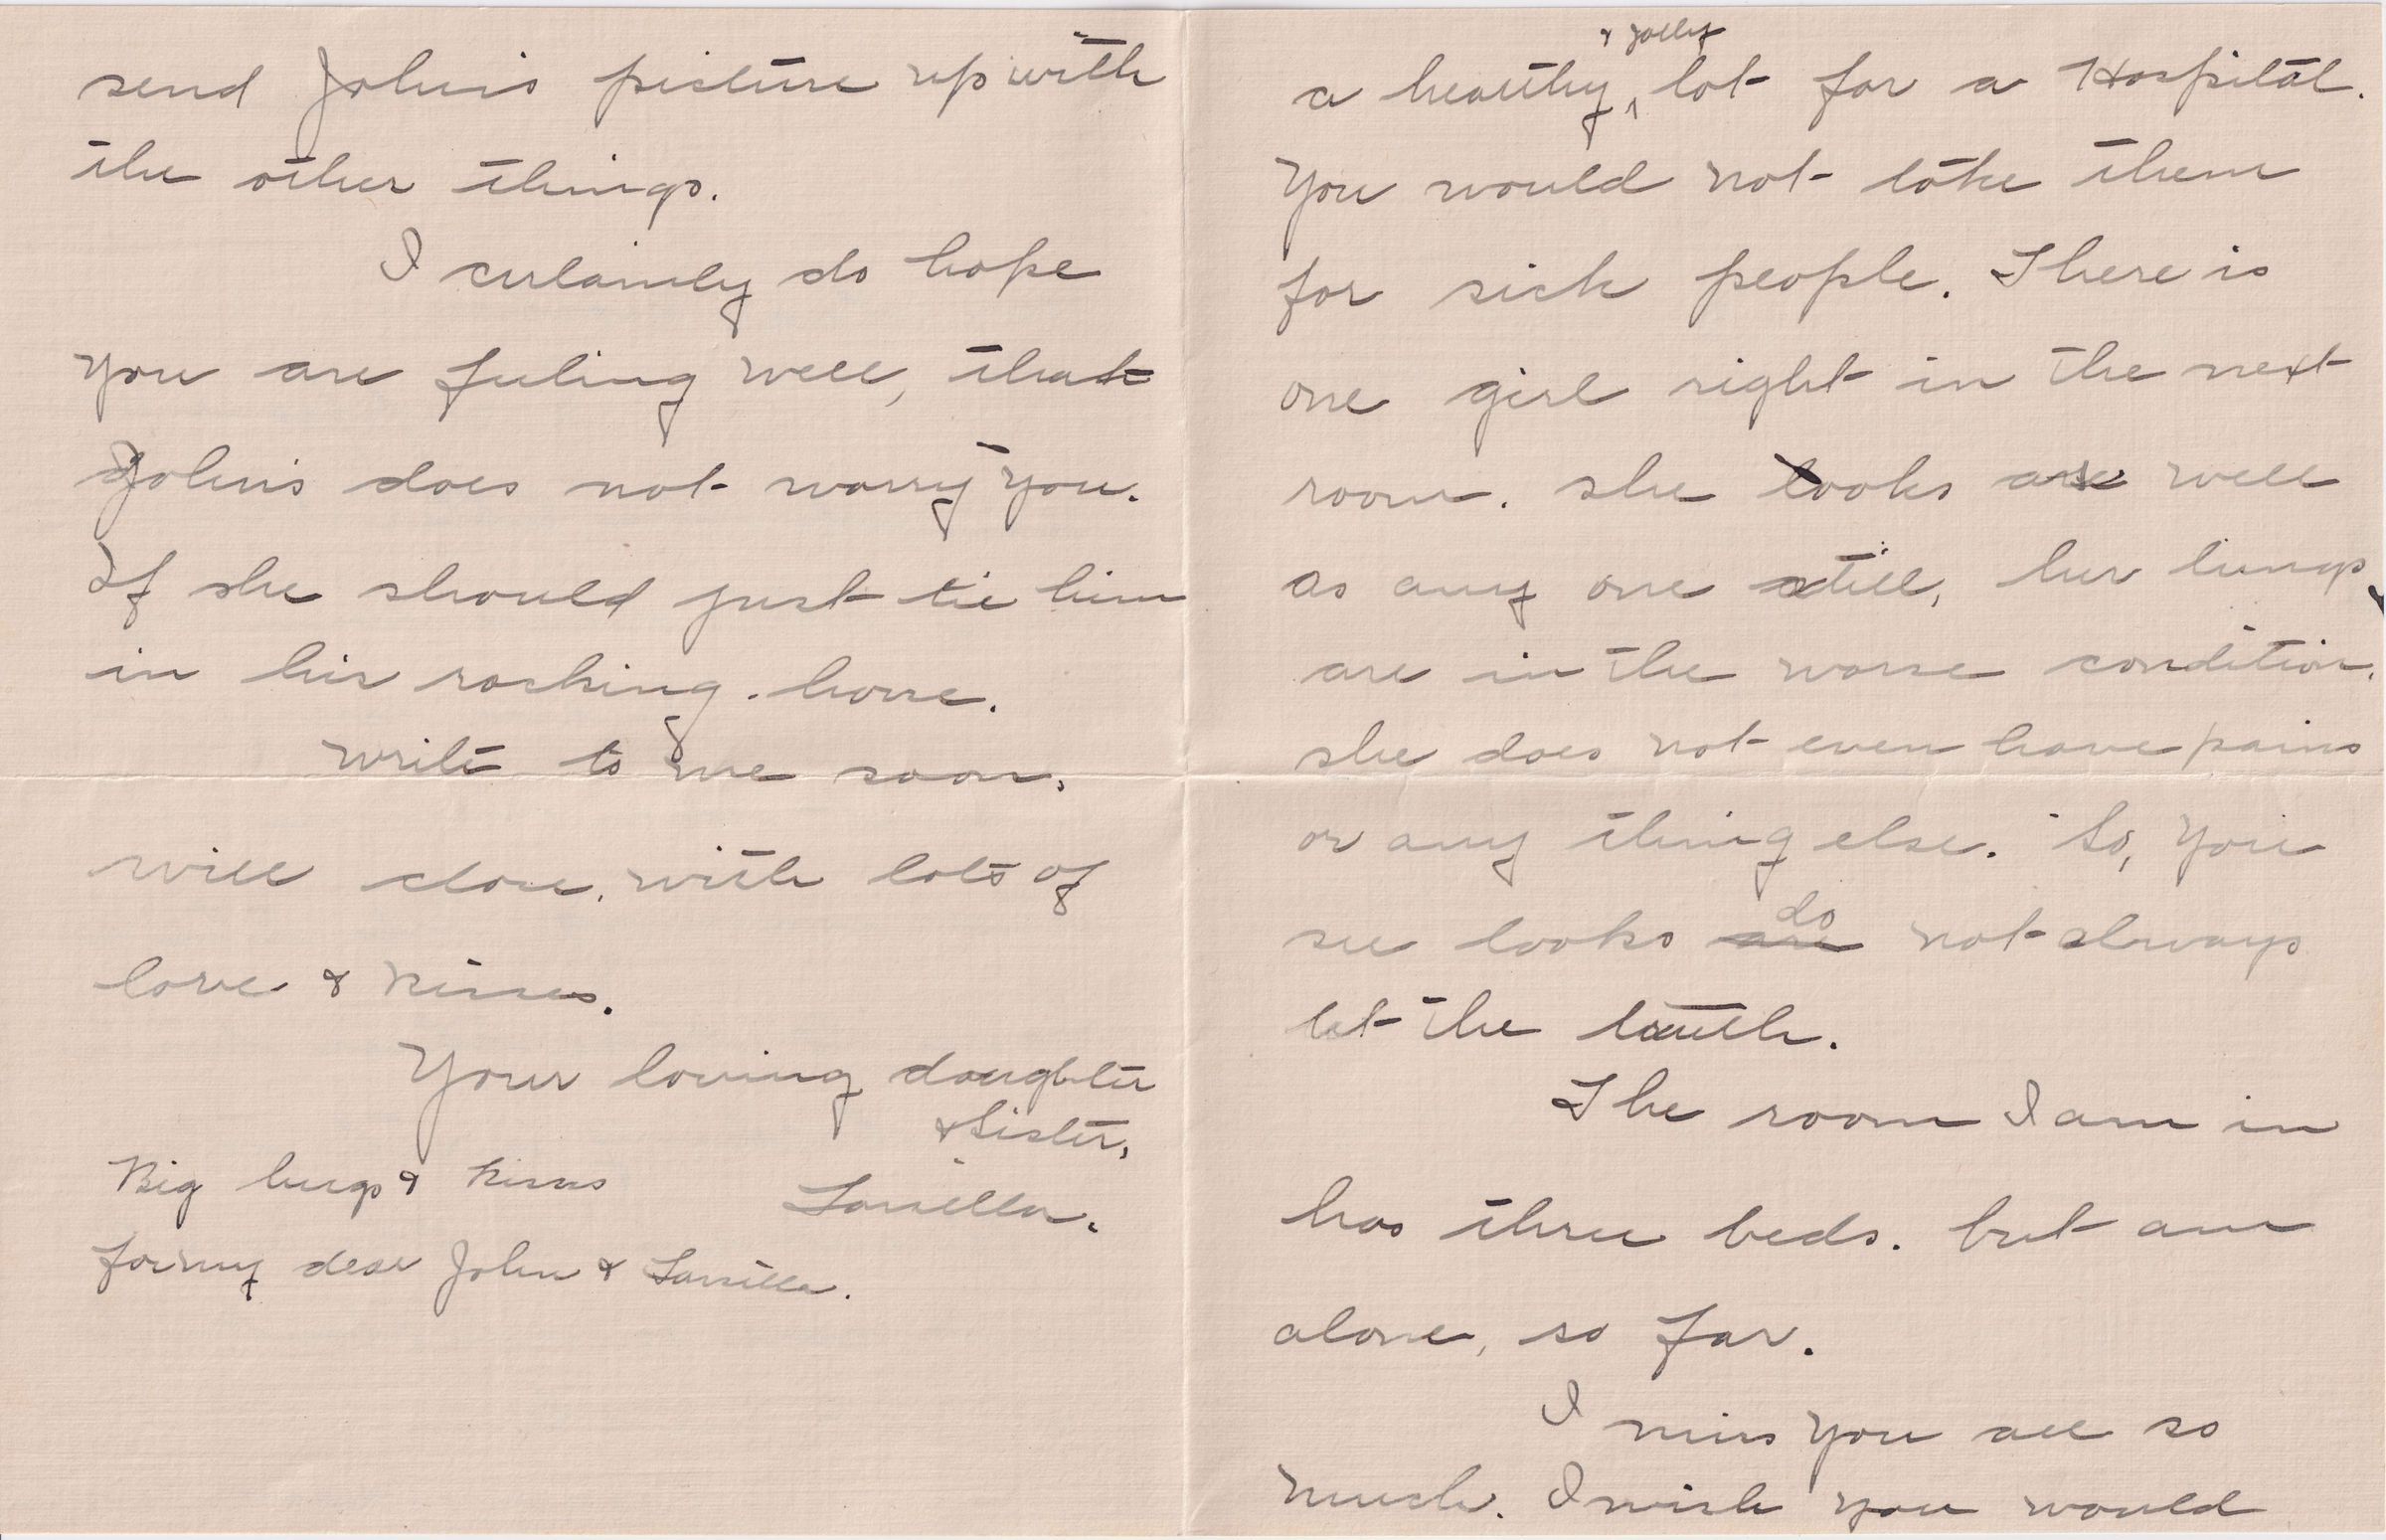 a healthy & jolly lot for a Hospital.
You would not take them
for sick people. There is
one girl right in the next
room. she looks as well
as any one still, her lungs
are in the worse condition.
she does not even have pains
or any thing else. So, you
see looks are do not always
let the truth.
The room I am in
has three beds. but am
alone, so far.
I miss you all so
much. I wish you would
send John's picture up with
the other things.
I certainly do hope
you are feeling well, that
John's does not worry you.
If she should just tie him
in his rocking-horse.
Write to me soon,
will close, with lots of
love & kisses.
Your loving daughter
& Sister,
Big hugs & kisses
for my dear John &